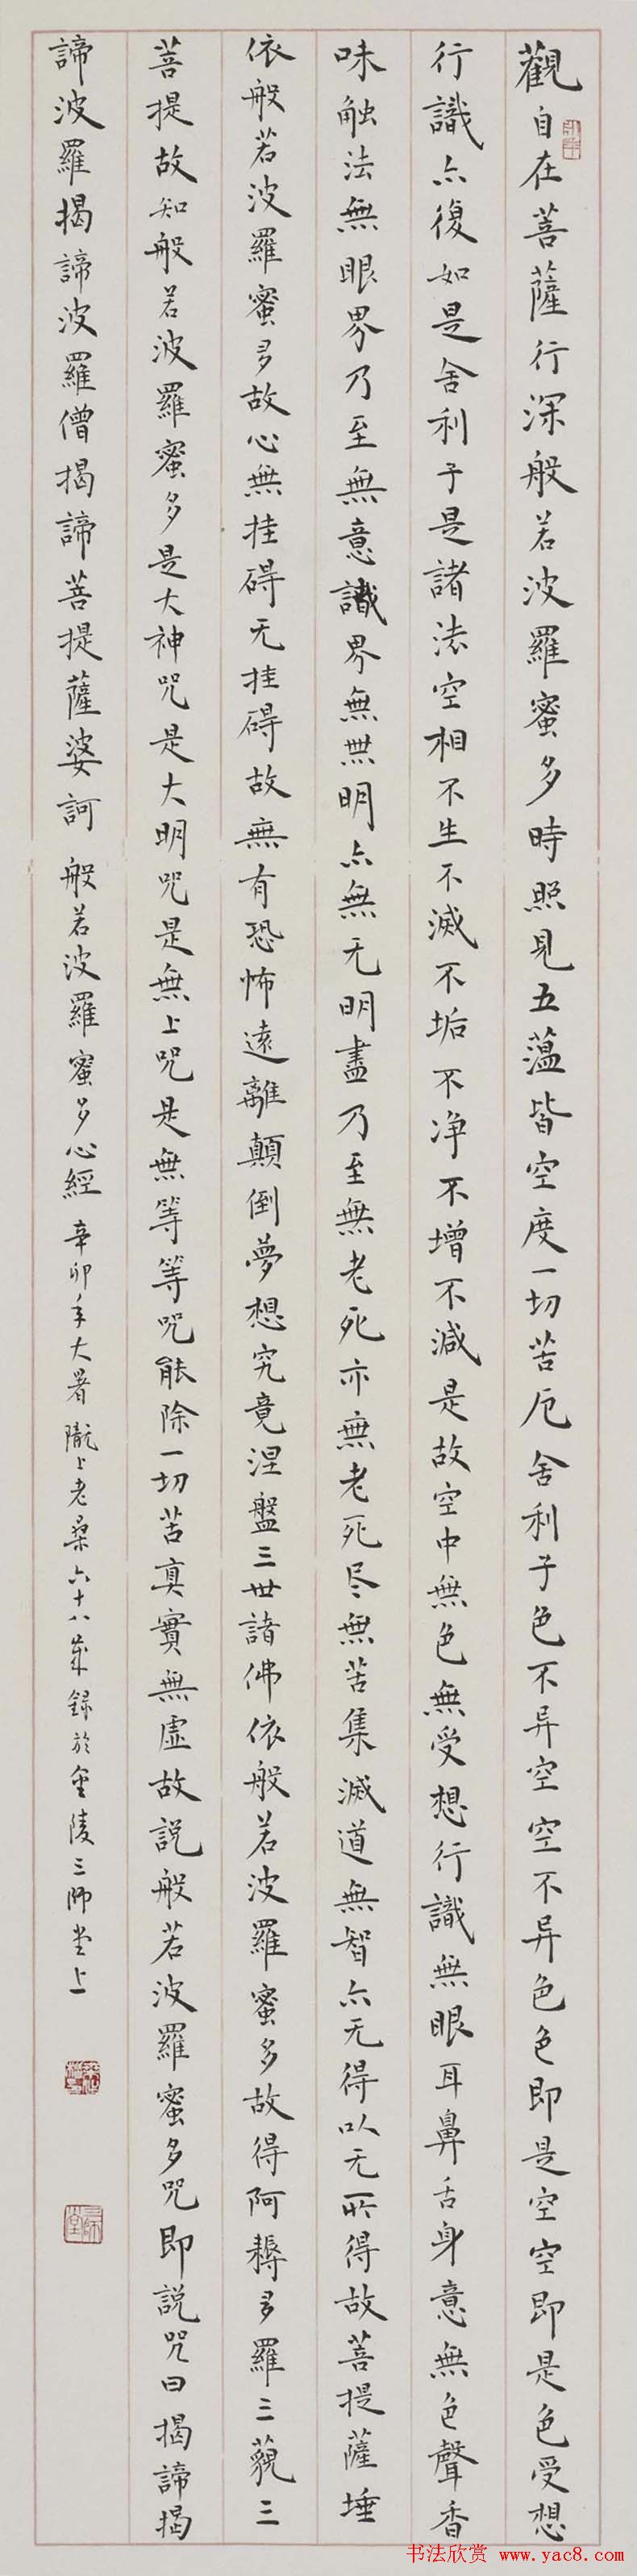 觀自在菩薩行深般若波羅蜜多時照見五蕰皆空度一切苦厄舍利子色不异空空不异色色即是空空即是色受想
行識亦復如是舍利子是諸法空相不生不滅不垢不净不增不減是故空中無色無受想行識無眼耳鼻舌身意無色聲香
味触法無眼界乃至無意識界無無明亦無无明盡乃至無老死亦無老死尽無苦集滅道無智亦无得以无所得故菩提薩埵
依般若波羅蜜多故心無挂碍无挂碍故無有恐怖遠離顛倒夢想究竟涅盤三世諸佛依般若波羅蜜多故得阿耨多羅三藐三
菩提故知般若波羅蜜多是大神咒是大明咒是無上咒是無等等咒能除一切苦真實無虛故説般若波羅蜜多咒即説咒曰揭諦揭
諦波羅揭諦波羅僧揭諦菩提薩婆訶 般若波羅蜜多心經 辛卯年大暑隴上老桑六十八歲錄於金陵三師堂上
三師堂
书法欣赏 www.yac8.com